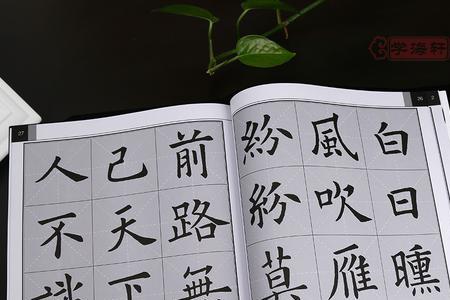 学海轩
26
白日曛
風吹雁
紛紛莫
27
前路無
己天下
人不識